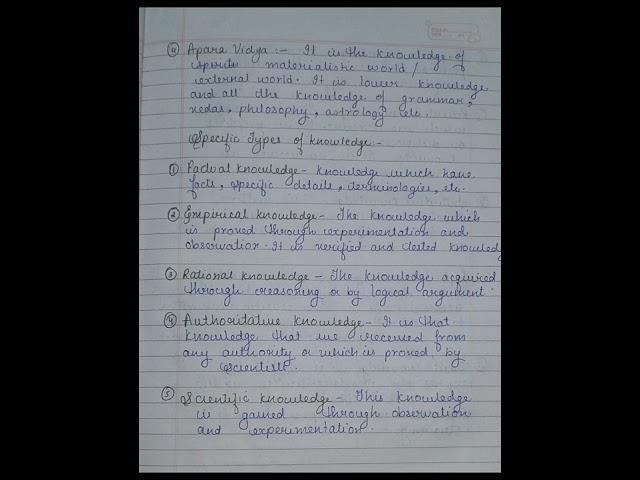 ④ Apara Vidya :- It is the knowledge of
materialistic world /
external world. It is lower knowledge
and all the knowledge of grammar,
vedas, philosophy, astrology etc.
Specific Types of knowledge:-
① Factual knowledge - knowledge which have
facts, specific details, terminologies, etc.
② Empirical knowledge - The knowledge which
is proved through experimentation and
observation. It is verified and tested knowledg
③ Rational knowledge - The knowledge acquired
through reasoning or by logical argument.
④ Authoritative knowledge - It is that
knowledge that we received from
any authority or which is proved by
scientist.
⑤ Scientific knowledge - This knowledge
is gained through observation
and experimentation.